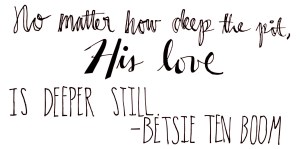 No matter how deep the pit,
His love
IS DEEPER STILL.
-BETSIE TEN BOOM